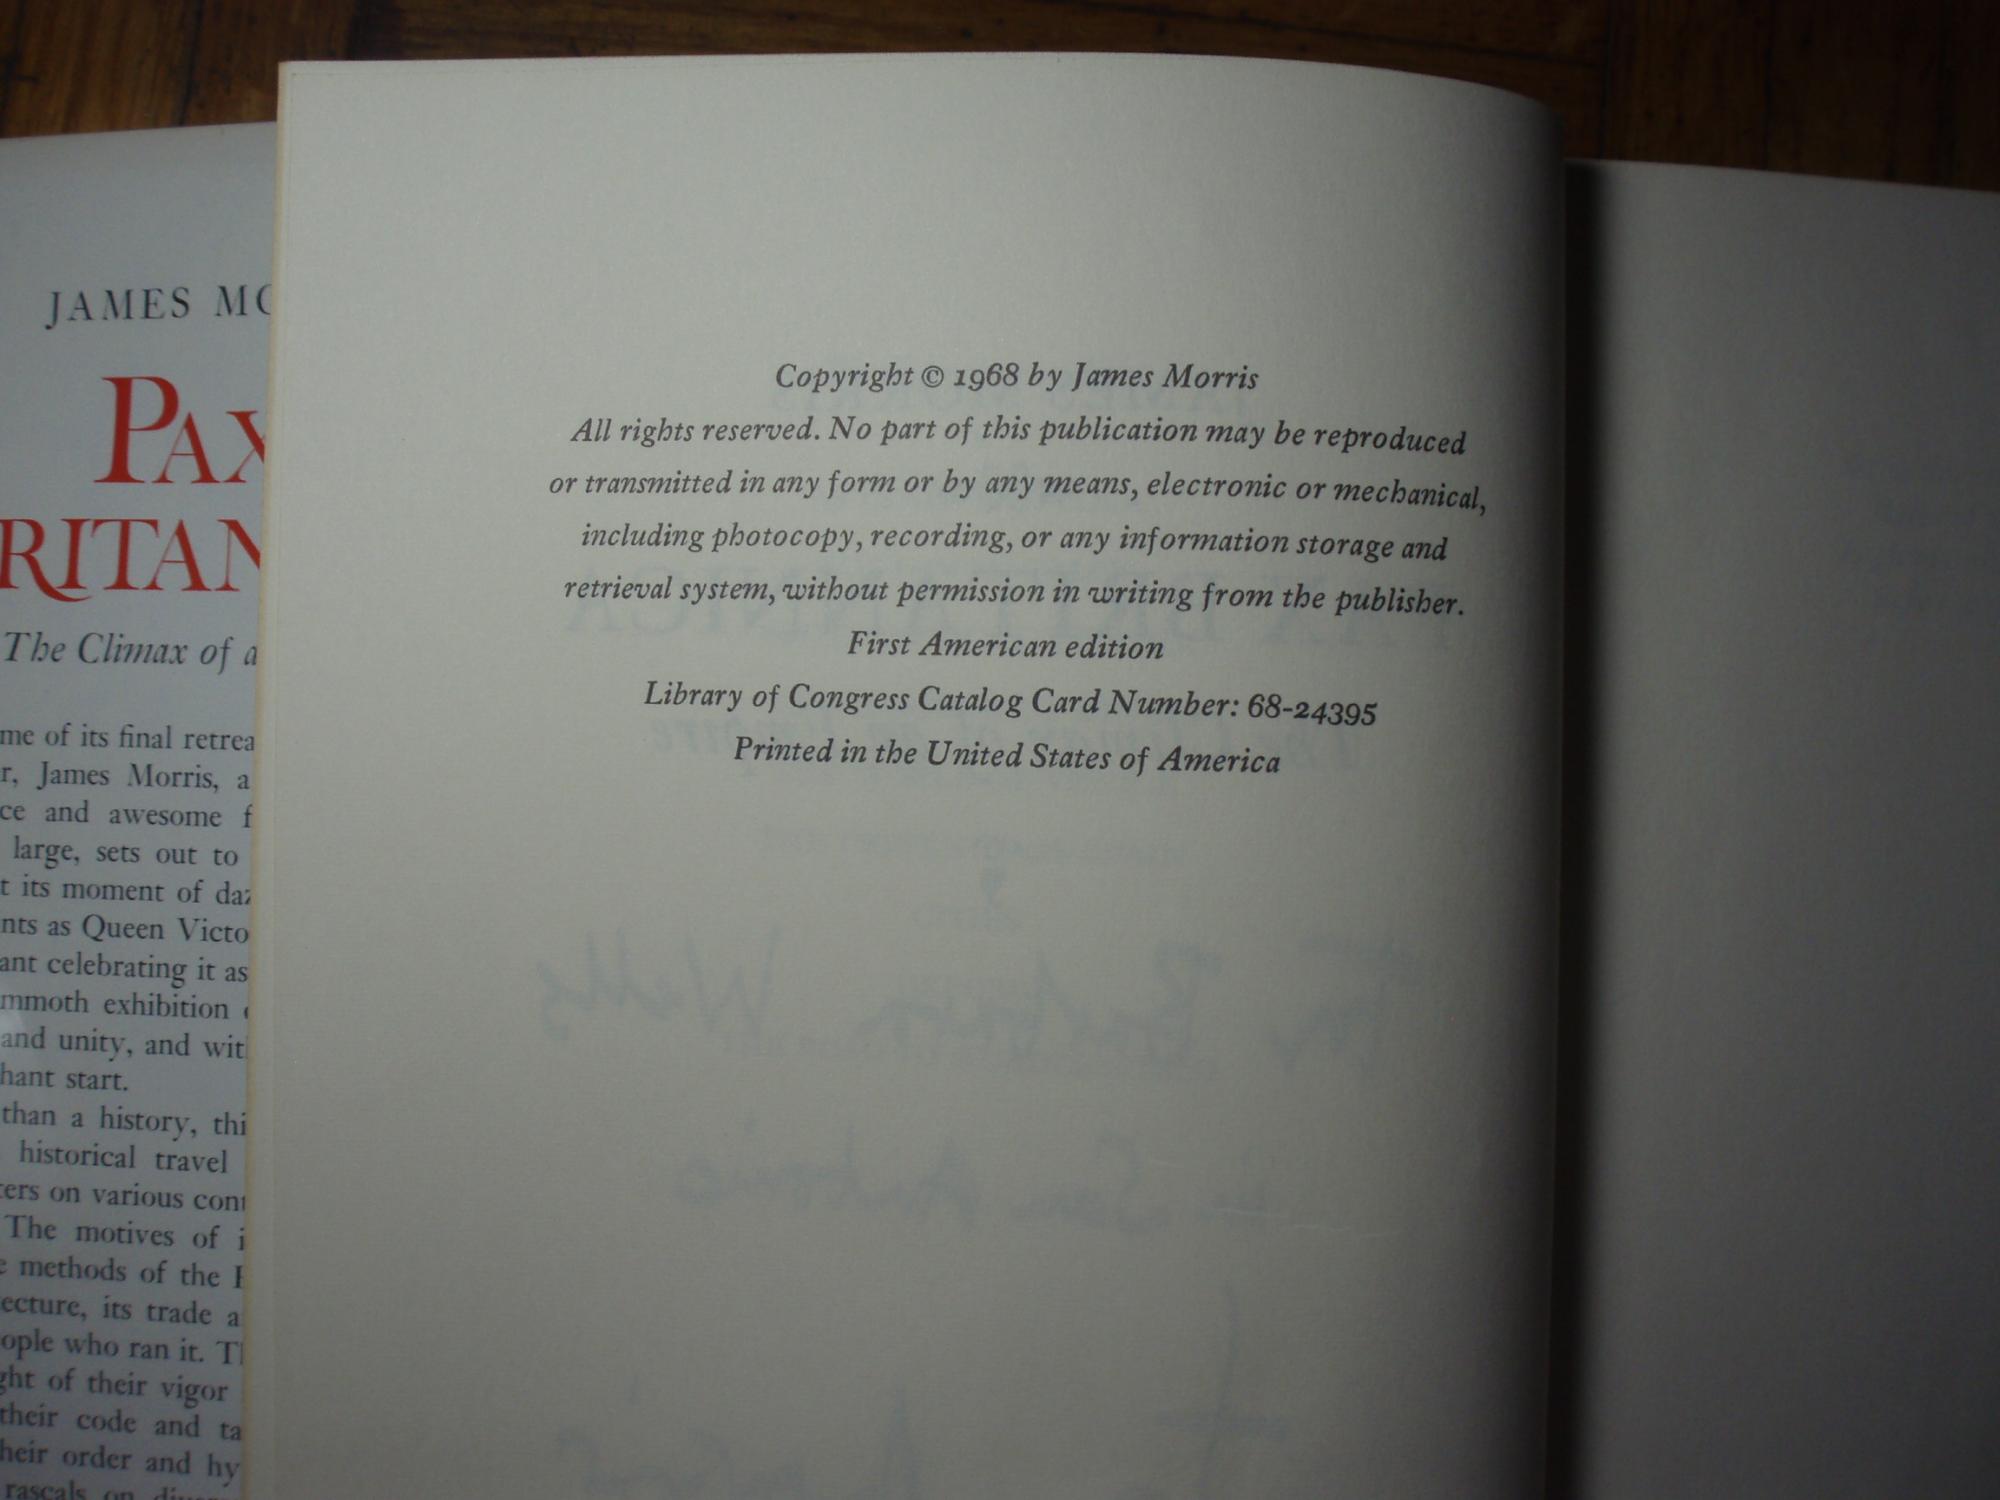 JAMES
PAX
The Climax of a
me of its final
James Morris, a
and awesome
large, sets out to
its moment of
as Queen
celebrating it as
exhibition
and unity, and
start.
than a history,
historical travel
on various
The motives of
methods of the
its trade
who ran it.
of their vigor
their code and
order and
rascals on
Copyright © 1968 by James Morris
All rights reserved. No part of this publication may be reproduced
or transmitted in any form or by any means, electronic or mechanical,
including photocopy, recording, or any information storage and
retrieval system, without permission in writing from the publisher.
First American edition
Library of Congress Catalog Card Number: 68-24395
Printed in the United States of America